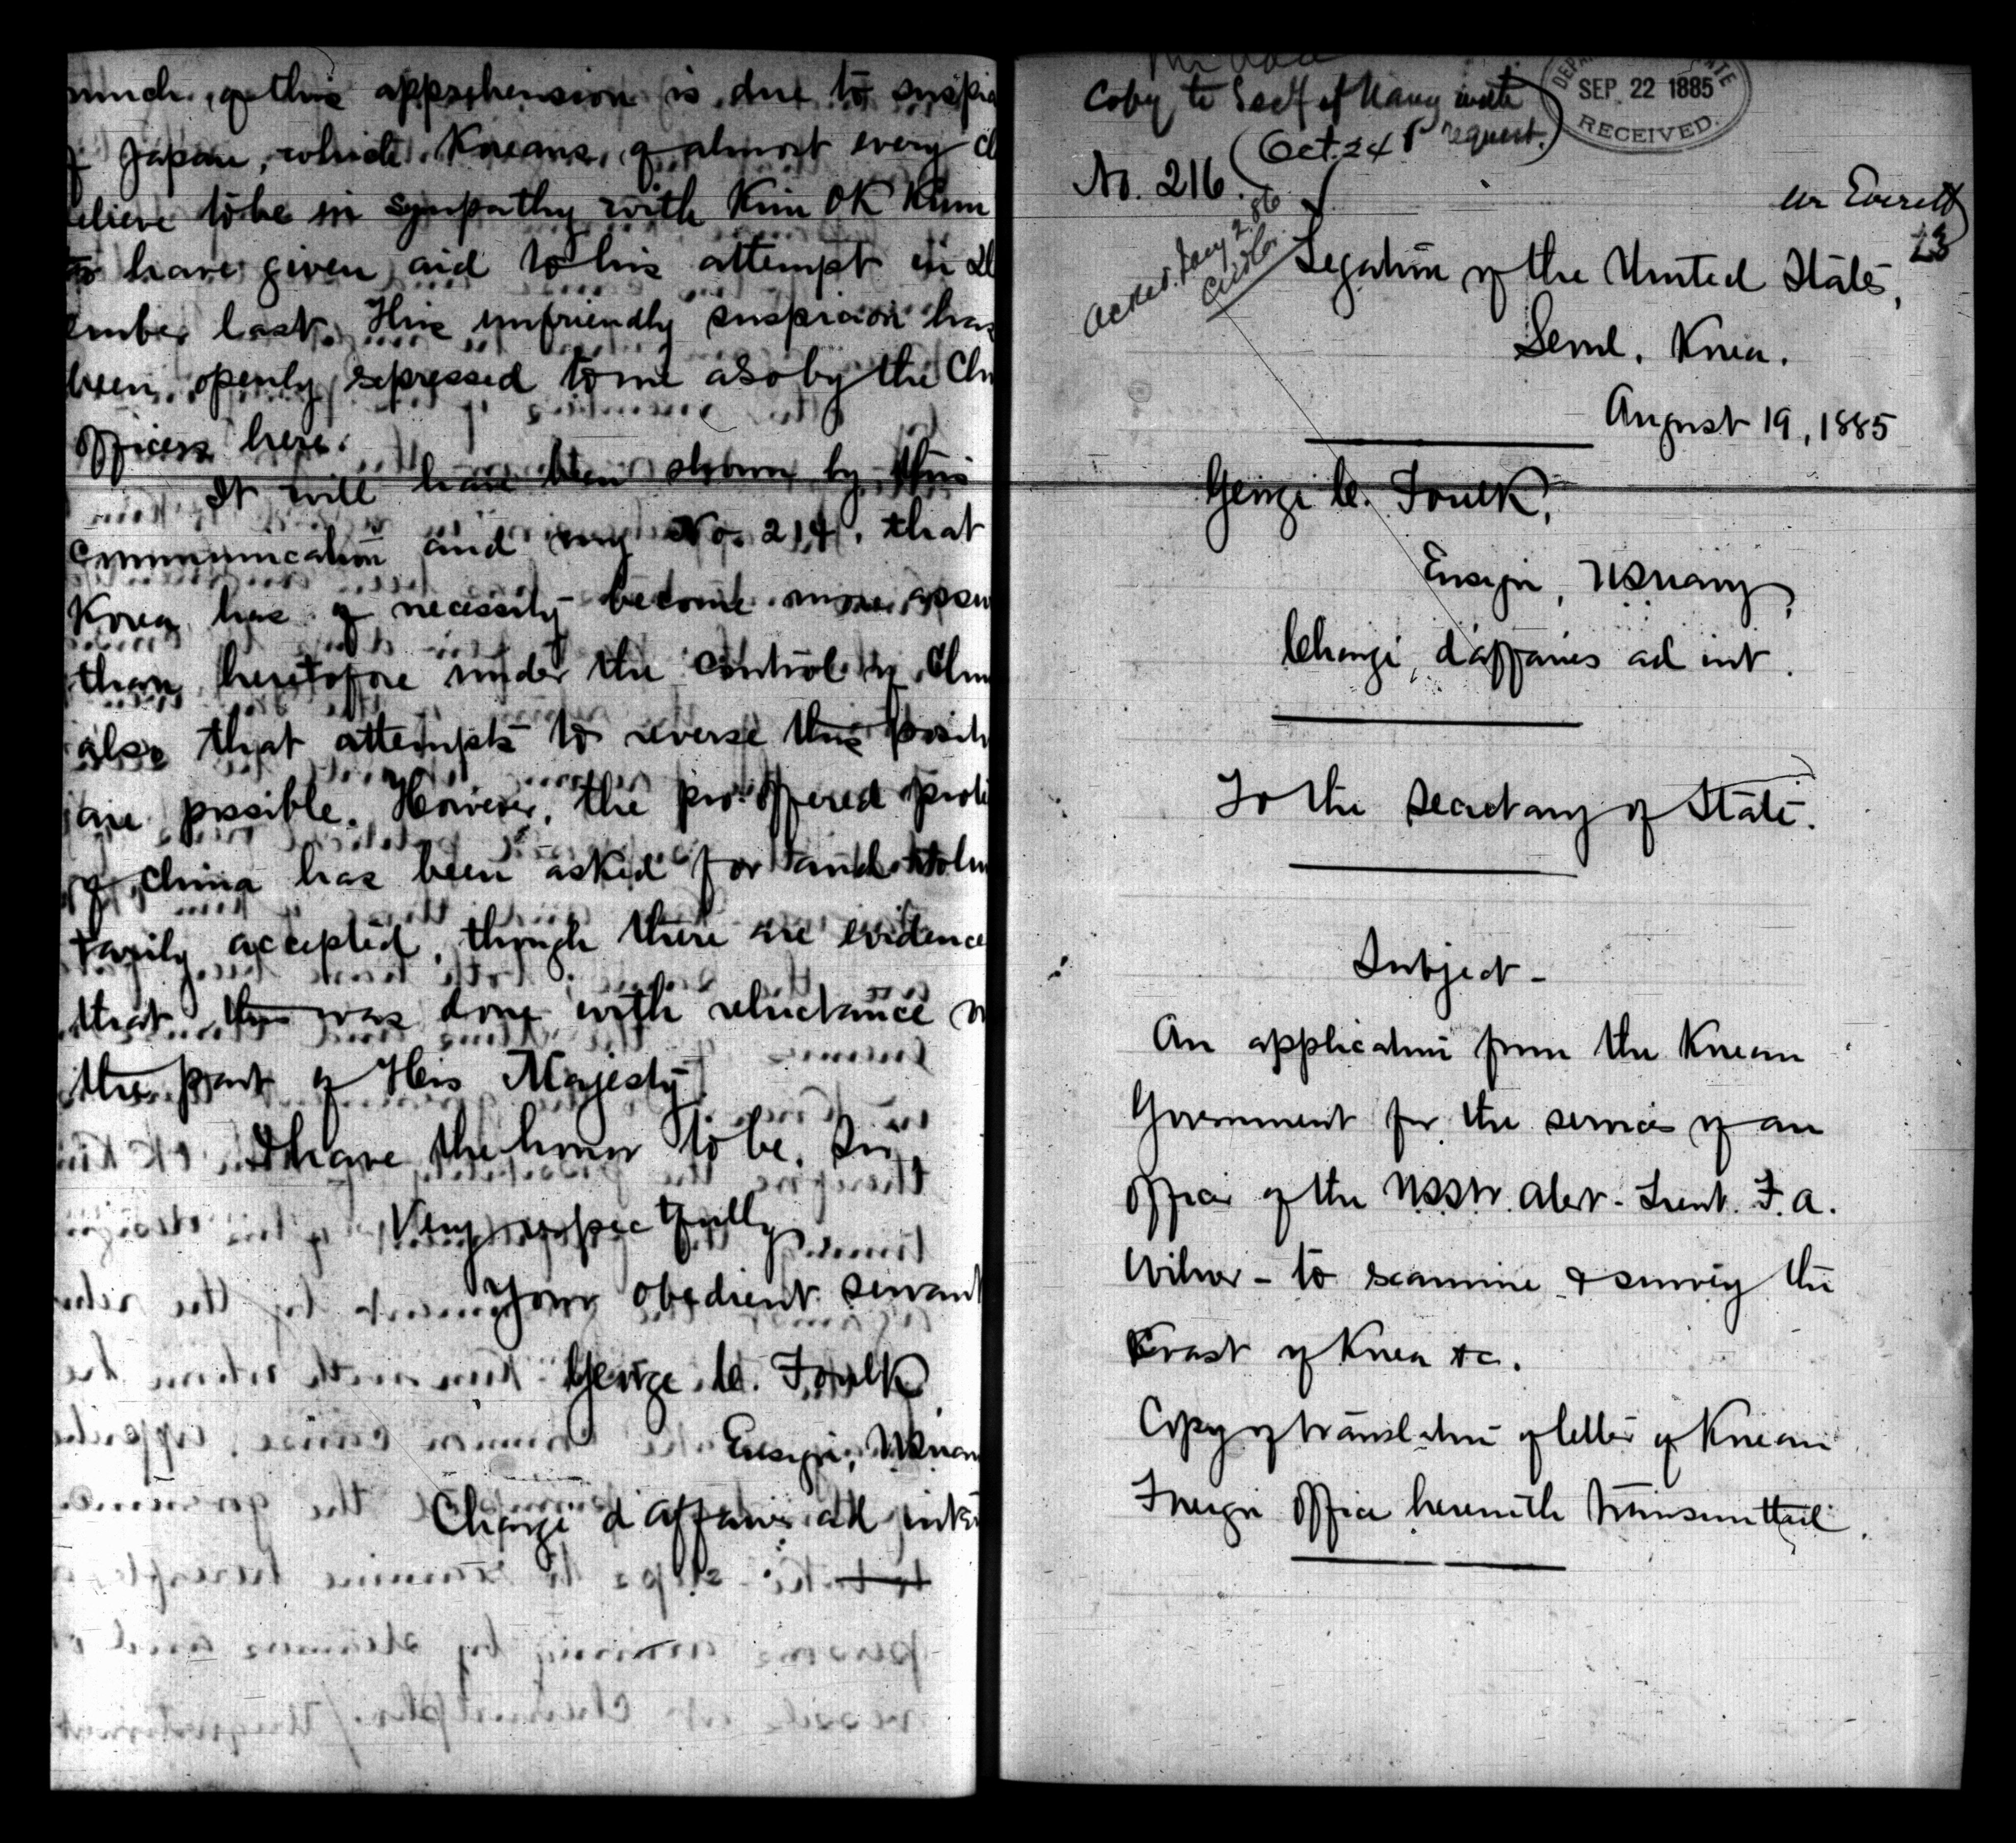 much of this apprehension is due to suspic
of Japan, which Koreans, of almost every cl
elieve to be in sympathy with Kim OK Kium
to have given aid to his attempt in De
ember last. This unfriendly suspicion has
been openly expressed to me also by the Chi
officers here.
It will have been shown by this
communication and my No. 214, that
Korea has of necessity become more assu
than heretofore under the control of Chin
also that attempts to reverse this posit
are possible. However, the proffered prote
of China has been asked for and volun
tarily accepted, though there are evidence
that this was done with reluctance on
the part of His Majesty.
I have the honor to be, Sir,
Very respectfully
Your obedient servant
George C. Foulk
Ensign, USNav
Chargé d'affaires ad inter
Copy to Secy of Navy with
request.
(Oct. 24
DEPA TATE
SEP 22 1885
RECEIVED.
No. 216.
Mr Everett
Acked. Jany 2.86
Legation of the United States,
Seoul, Korea.
August 19, 1885
George C. Foulk,
Ensign, USNavy,
Chargé d'affaires ad int.
To the Secretary of State.
Subject -
An application from the Korean
Government for the services of an
officer of the USSTr. Alert - Lieut. F. A.
Wilner - to examine & survey the
Coast of Korea &c.
Copy of translation of letter of Korean
Foreign Office herewith transmitted.